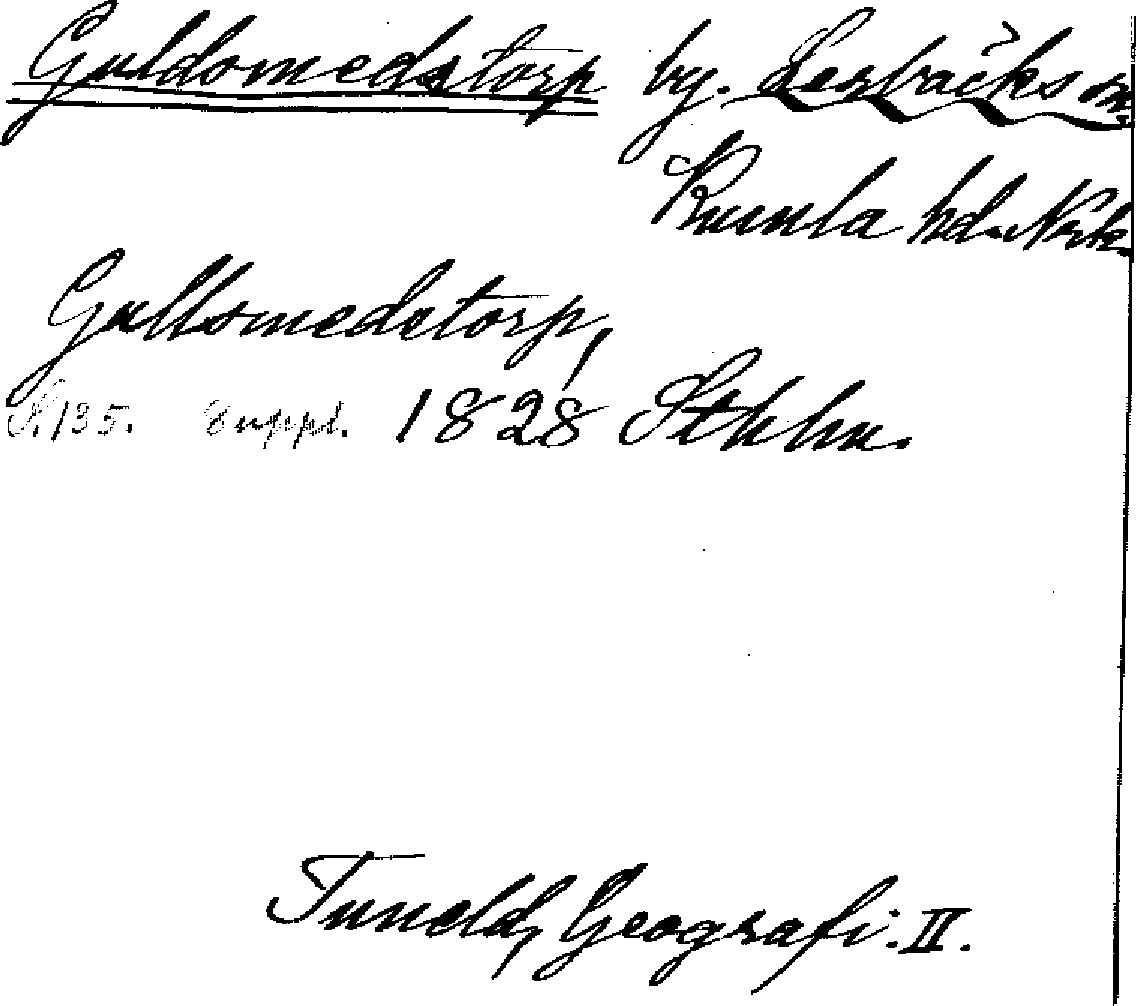 Guldsmedstorp by. Lerbäcks sn.
Kumla hd. Nerke.
Gullsmedstorp,
S. 135. Suppl. 1828 Sthlm.
Tuneld, Geografi. II.